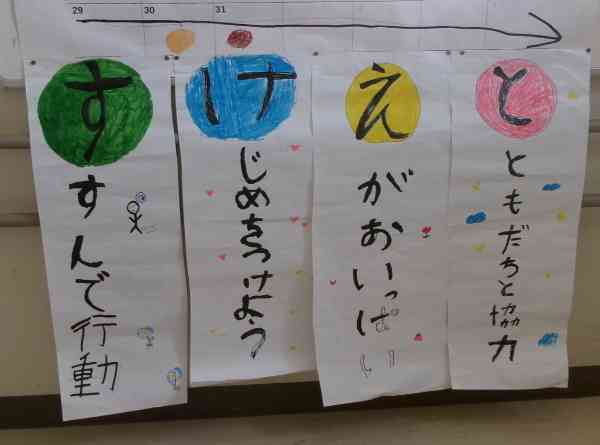 29 30 31
と
ともだちと協力
え
がおいっぱい
け
じめをつけよう
す
すんで行動